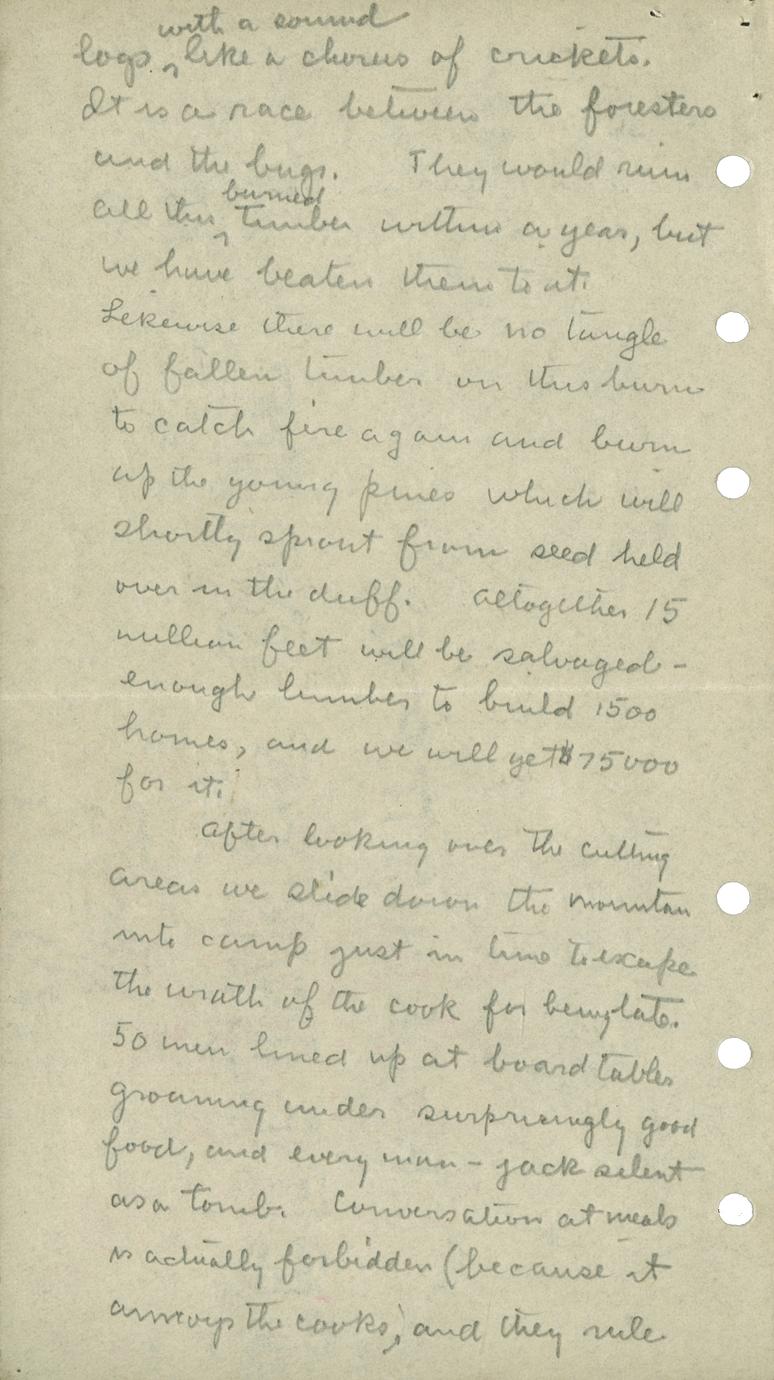 with a sound
logs ^ like a chorus of crickets.
It is a race between the foresters
and the bugs. They would ruin
burned
all this ^ timber within a year, but
we have beaten them to it.
Likewise there will be no tangle
of fallen timber on this burn
to catch fire again and burn
up the young pines which will
shortly sprout from seed held
over in the duff. Altogether 15
million feet will be salvaged -
enough lumber to build 1500
homes, and we will get $75000
for it.
After looking over the cutting
areas we slide down the mountain
into camp just in time to escape
the wrath of the cook for being late.
50 men lined up at board tables
groaning under surprisingly good
food, and every man-jack silent
as a tomb. Conversation at meals
is actually forbidden (because it
annoys the cooks), and they rule